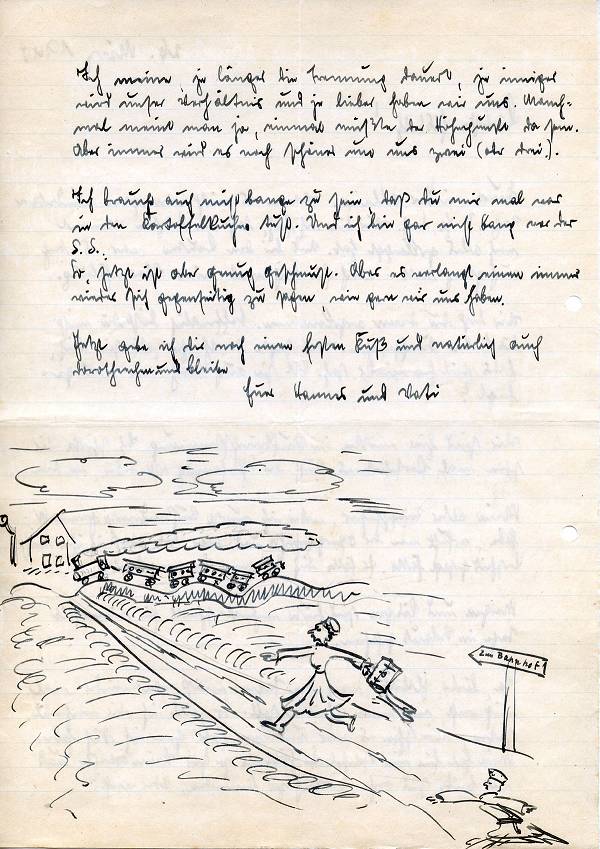 Ich meine, je länger die Trennung dauert, je inniger
wird unser Verhältnis und je lieber haben wir uns. Manch-
mal meint man ja, einmal müßte der Höhepunkt da sein.
Aber immer wird es noch schöner um uns zwei (oder drei).
Ich brauch auch nicht bange zu sein, daß du mir mal was
in den Kartoffelkuchen tust. Und ich bin gar nicht bang vor der
S.S.
So, jetzt ist aber genug geschmust. Aber es verlangt einen immer
wieder sich gegenseitig zu sagen wie gern wir uns haben.
Jetzt gebe ich dir noch einen festen Kuß und natürlich auch
und bleibe
Euer Hannes und Vati
Zum Bahnhof